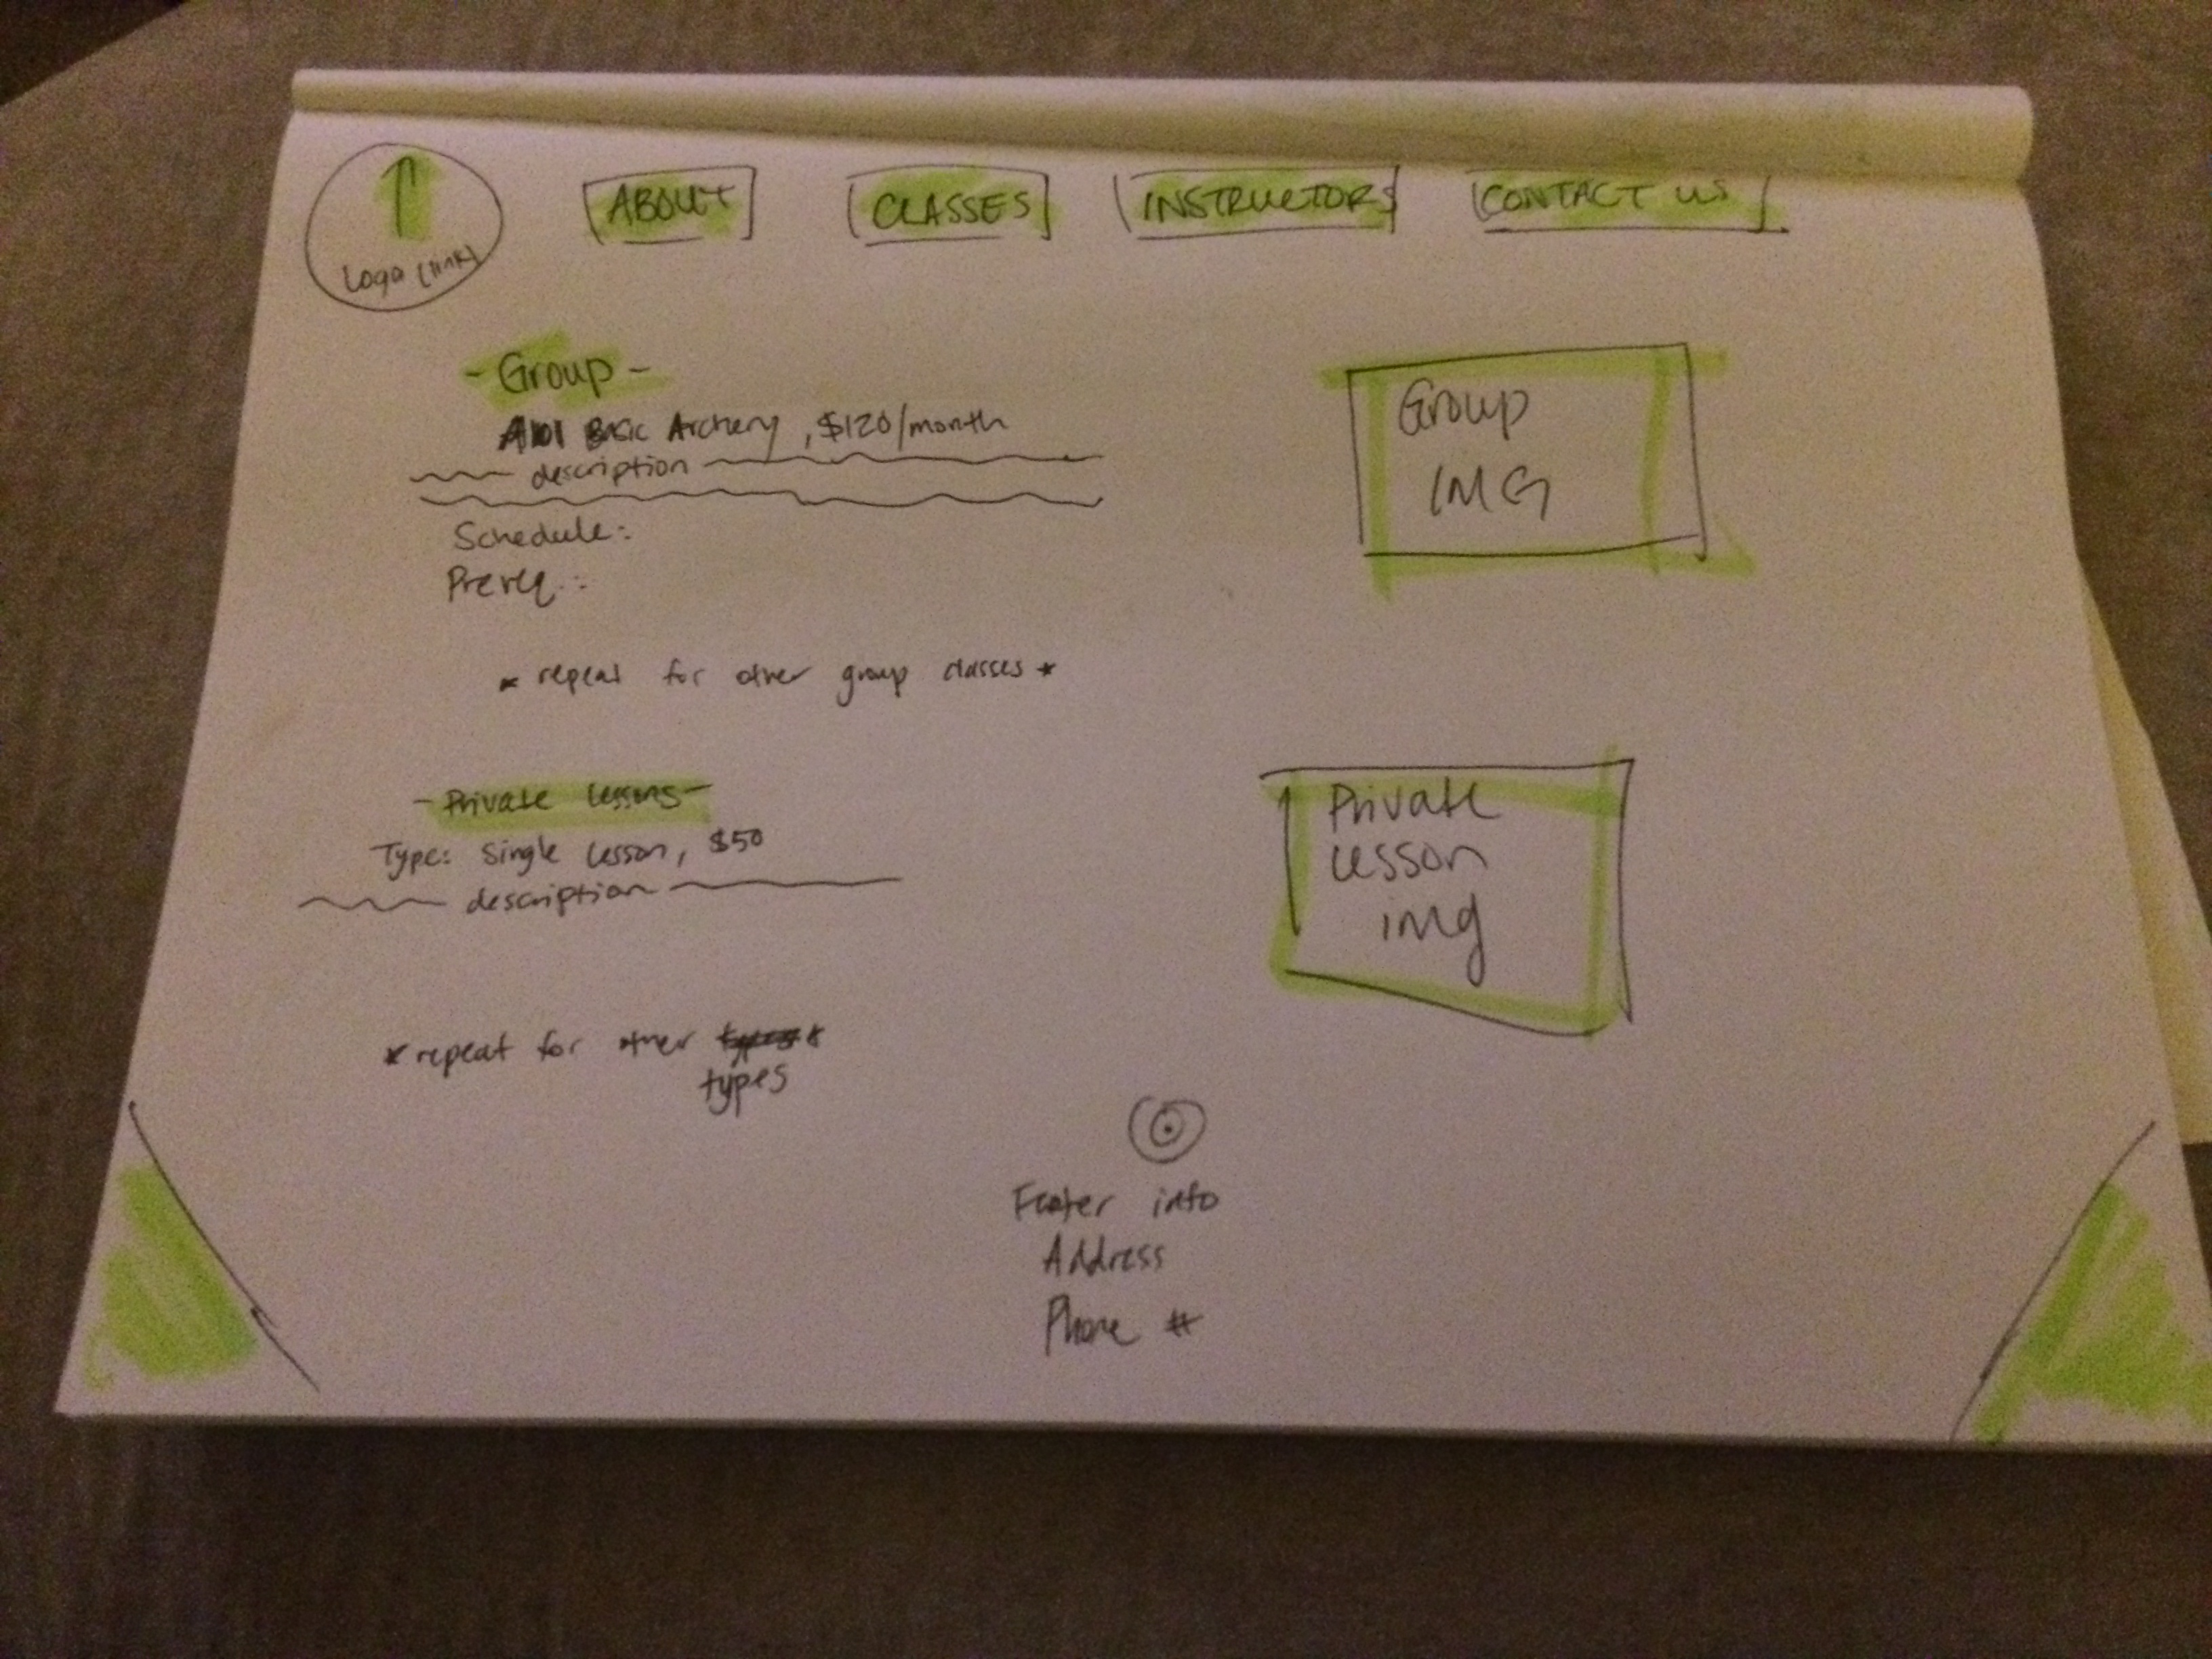 Logo (link)
ABOUT
CLASSES
INSTRUCTORS
CONTACT US
- Group -
A101 Basic Archery, $120/month
description
Schedule:
Prereq.:
* repeat for other group classes *
Group
IMG
- Private lessons -
Type: Single lesson, $50
description
* repeat for other
types
Private
lesson
img
Footer info
Address
Phone #